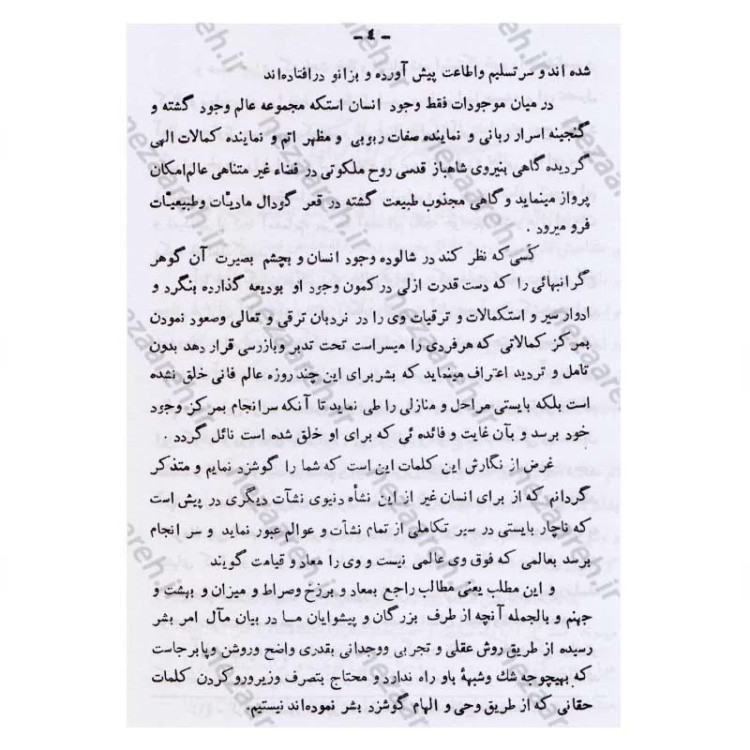 - ٤ -
شده اند و سر تسلیم و اطاعت پیش آورده و بزانو در افتاده‌اند
در میان موجودات فقط وجود انسان استکه مجموعه عالم وجود گشته و
گنجینه اسرار ربانی و نماینده صفات ربوبی و مظهر اتم و نماینده کمالات الهی
گردیده گاهی بنیروی شاهباز قدسی روح ملکوتی در فضاء غیر متناهی عالم امکان
پرواز مینماید و گاهی مجذوب طبیعت گشته در قعر گودال مادیات و طبیعیات
فرو میرود .
کسی که نظر کند در شالوده وجود انسان و بچشم بصیرت آن گوهر
گرانبهائی را که دست قدرت ازلی در کمون وجود او بودیعه گذارده بنگرد و
ادوار سیر و استکمالات و ترقیات وی را در نردبان ترقی و تعالی وصعود نمودن
بمرکز کمالاتی که هرفردی را میسر است تحت تدبر و بازرسی قرار دهد بدون
تامل و تردید اعتراف مینماید که بشر برای این چند روزه عالم فانی خلق نشده
است بلکه بایستی مراحل و منازلی را طی نماید تا آنکه سرانجام بمرکز وجود
خود برسد و بآن غایت و فائده ئی که برای او خلق شده است نائل گردد .
غرض از نگارش این کلمات این است که شما را گوشزد نمایم و متذکر
گردانم که از برای انسان غیر از این نشأه دنیوی نشآت دیگری در پیش است
که ناچار بایستی در سیر تکاملی از تمام نشآت و عوالم عبور نماید و سر انجام
برسد بعالمی که فوق وی عالمی نیست و وی را معاد و قیامت گویند
و این مطلب یعنی مطالب راجع بمعاد و برزخ وصراط و میزان و بهشت و
جهنم و بالجمله آنچه از طرف بزرگان و پیشوایان مــا در بیان مآل امر بشر
رسیده از طریق روش عقلی و تجربی ووجدانی بقدری واضح وروشن وپابرجاست
که بهیچوجه شك وشبهۀ باو راه ندارد و محتاج بتصرف وزیرورو کردن کلمات
حقانی که از طریق وحی و الهام گوشزد بشر نموده‌اند نیستیم.
nezaareh.ir